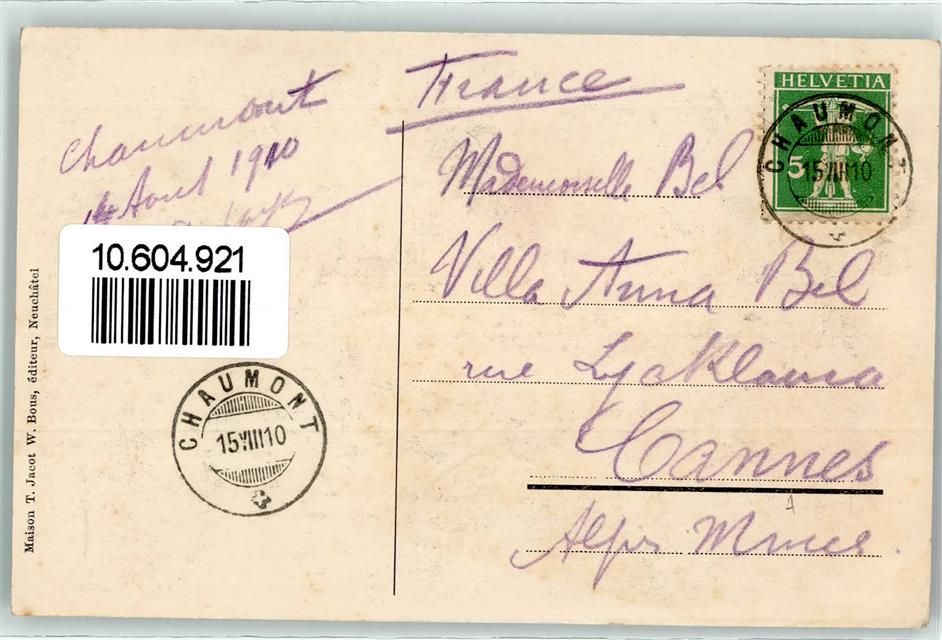 Chaumont
14 Aout 1910
10.604.921
CHAUMONT
15 VIII 10
Maison T. Jacot W. Bous, éditeur, Neuchâtel
France
HELVETIA
5
CHAUMONT
15 VIII 10
Mademoiselle Bel
Villa Anna Bel
rue Lycklama
Cannes
Alpes Mmes.